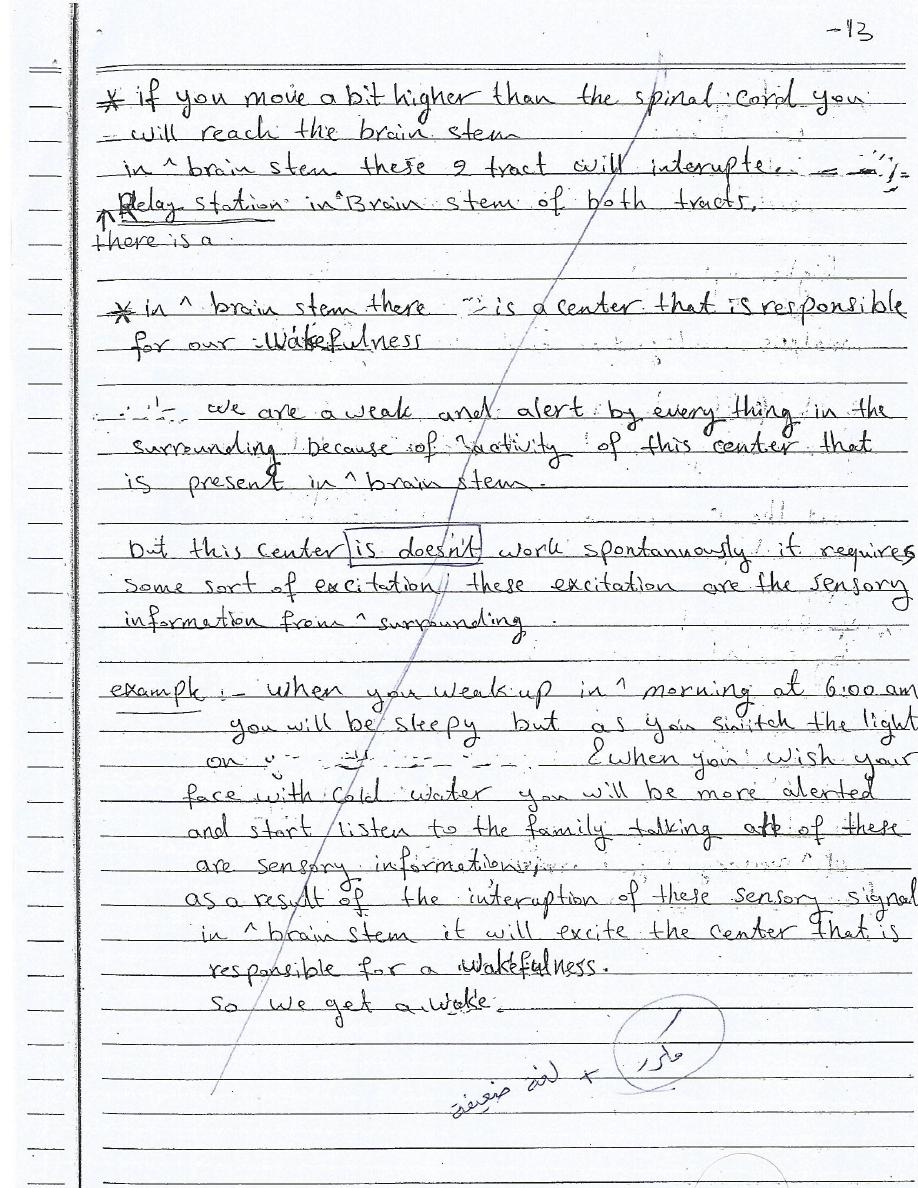 -13
* if you move a bit higher than the spinal cord you
will reach the brain stem
in ^ brain stem these 2 tract will interupte.
Relay station in ^ Brain stem of both tracts.
there is a
* in ^ brain stem there is a center that is responsible
for our wakefulness
we are a weak and alert by every thing in the
surrounding because of activity of this center that
is present in ^ brain stem.
but this center is doesn't work spontannuously it requires
some sort of excitation, these excitation are the sensory
information from ^ surrounding.
example :- when you weak up in ^ morning at 6:00 am
you will be sleepy but as you switch the light
on & when you wish your
face with cold water you will be more alerted
and start listen to the family talking all of these
are sensory information,
as a result of the interuption of these sensory signal
in ^ brain stem it will excite the center that is
responsible for a wakefulness.
so we get a wake.
مكرر + لغة ضعيفة